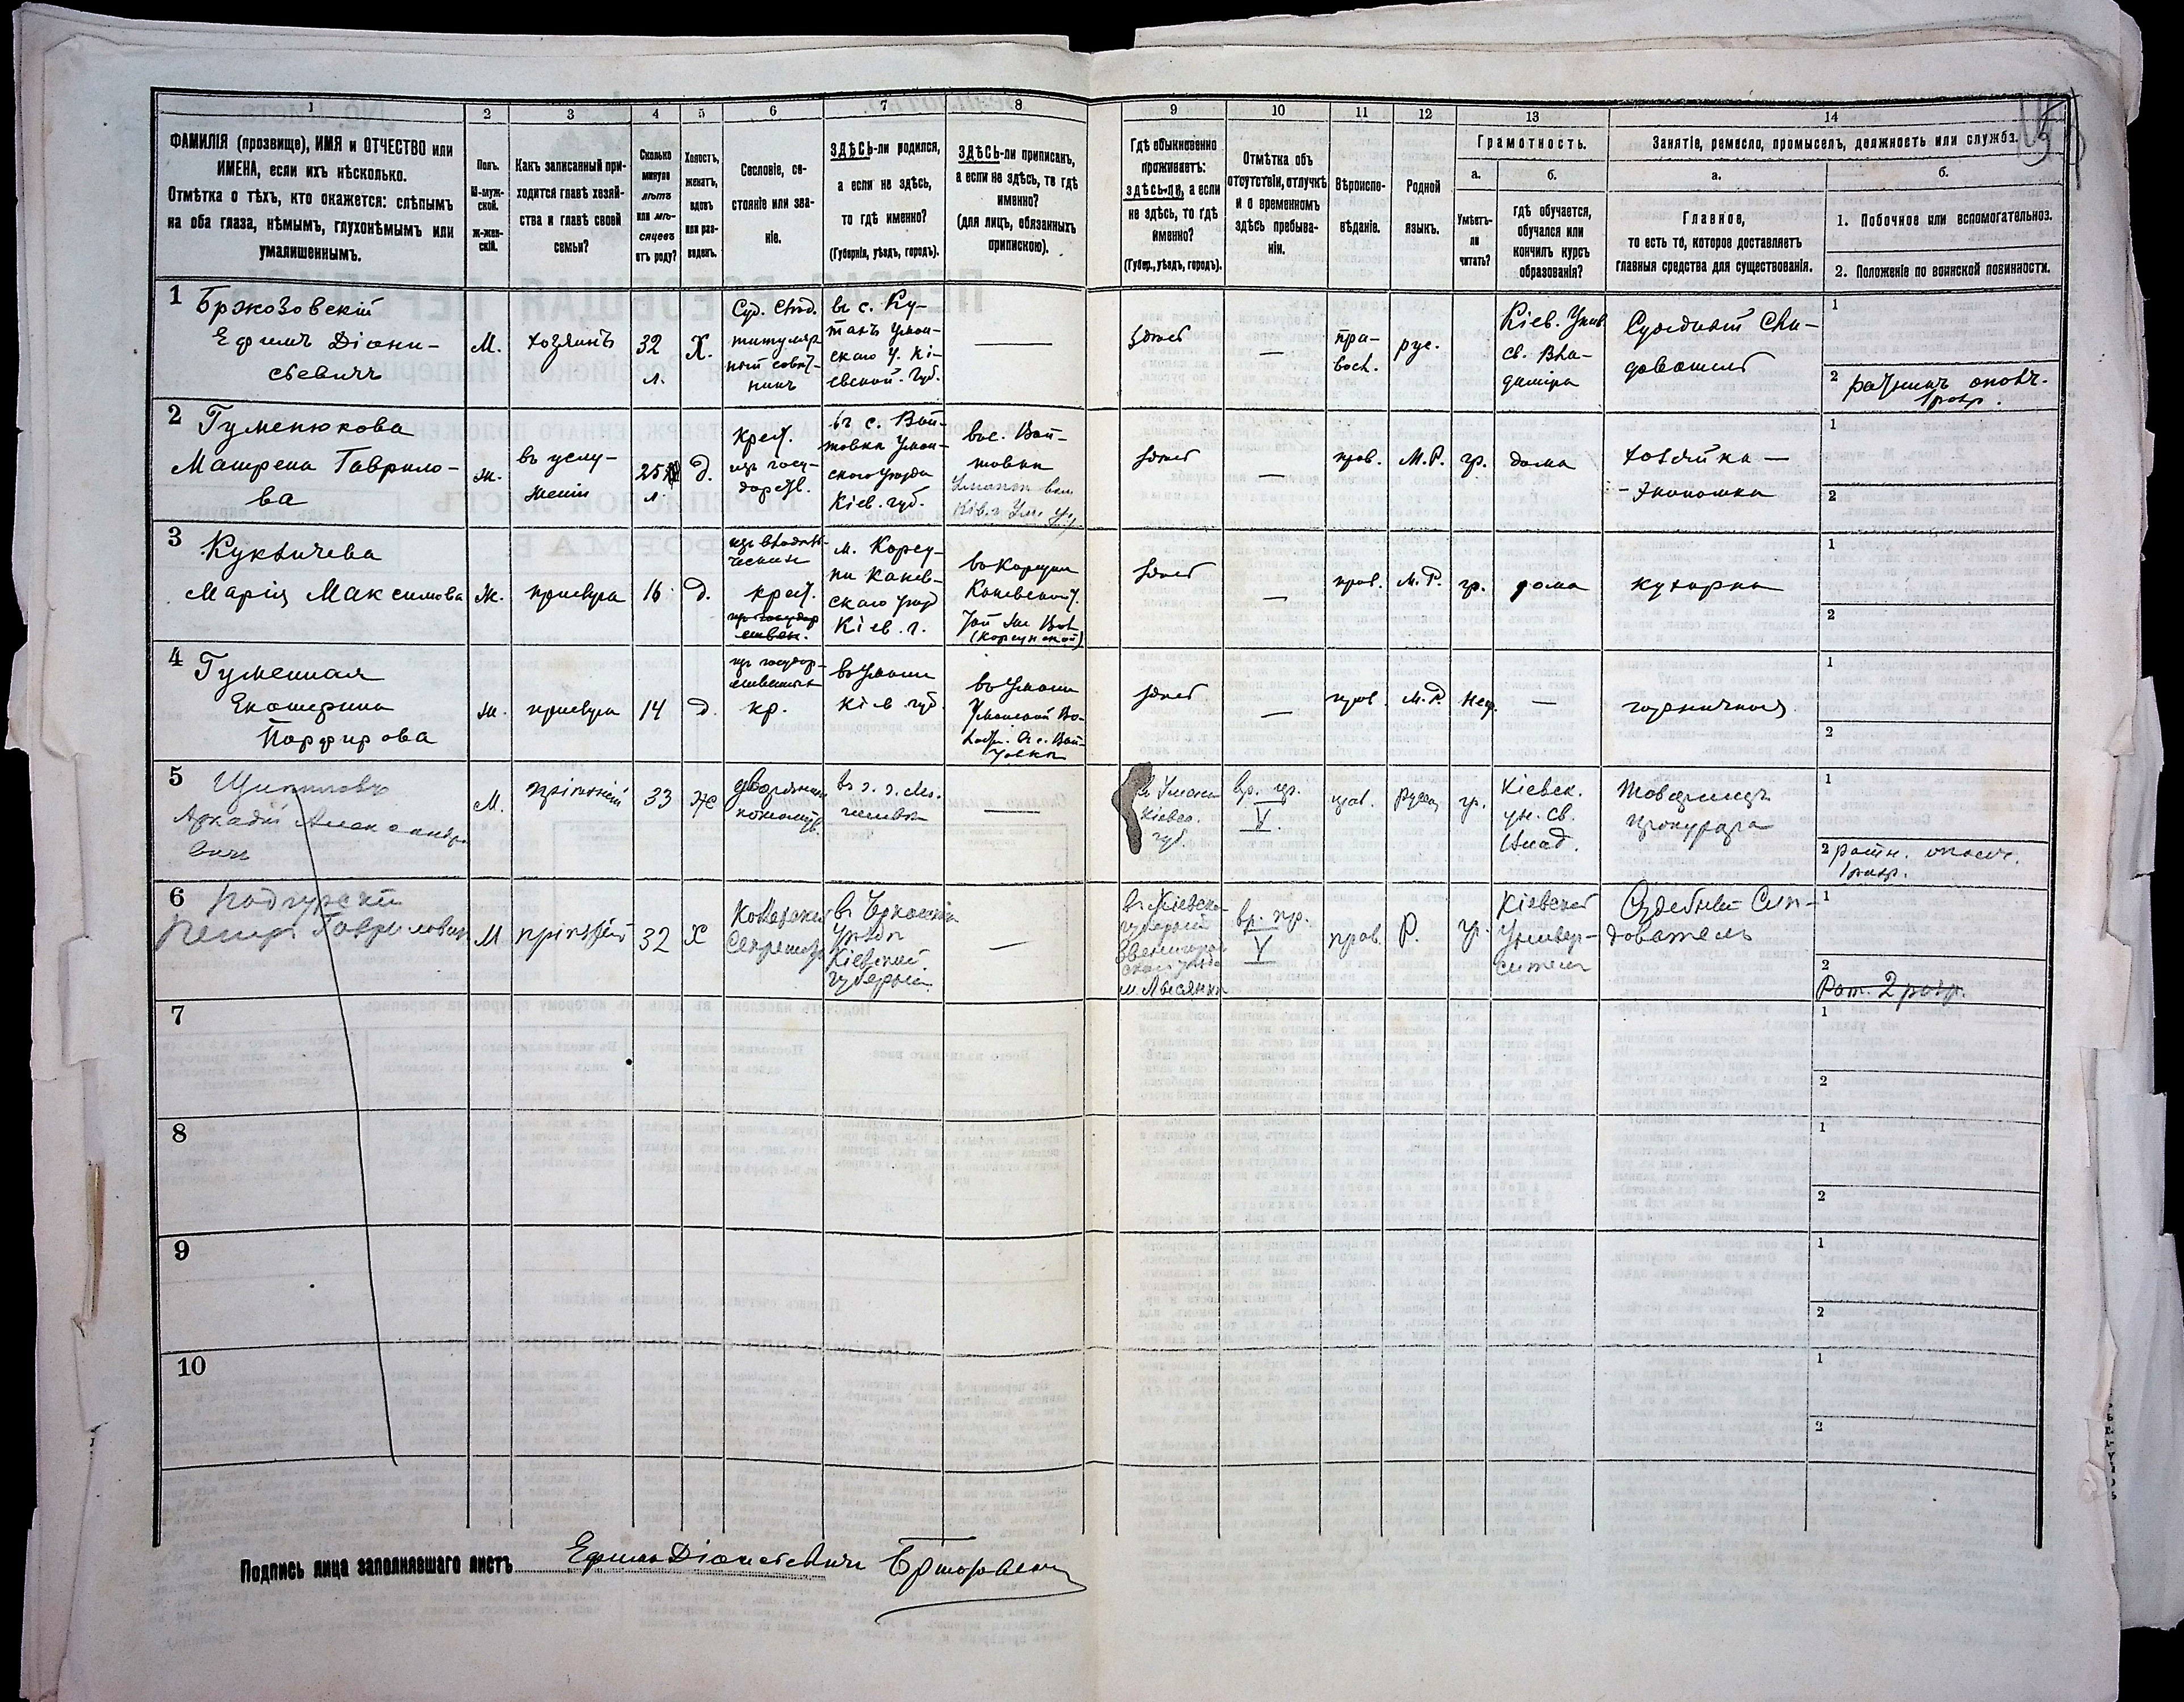 1 2 3 4 5 6 7 8 9 10 11 12 13 14
ФАМИЛІЯ (прозвище), ИМЯ и ОТЧЕСТВО или
ИМЕНА, если ихъ нѣсколько.
Отмѣтка о тѣхъ, кто окажется: слѣпымъ
на оба глаза, нѣмымъ, глухонѣмымъ или
умалишеннымъ.
Полъ.
М-муж-
ской.
ж-жен-
скій.
Какъ записанный при-
ходится главѣ хозяй-
ства и главѣ своей
семьи?
Сколько
минуло
лѣтъ
или мѣ-
сяцевъ
отъ роду?
Холостъ,
женатъ,
вдовъ
или раз-
веденъ.
Сословіе, со-
стояніе или зва-
ніе.
ЗДѢСЬ-ли родился,
а если не здѣсь,
то гдѣ именно?
(Губернія, уѣздъ, городъ).
ЗДѢСЬ-ли приписанъ,
а если не здѣсь, то гдѣ
именно?
(для лицъ, обязанныхъ
припискою).
Гдѣ обыкновенно
проживаетъ:
здѣсь-ли, а если
не здѣсь, то гдѣ
именно?
(Губер., уѣздъ, городъ).
Отмѣтка объ
отсутствіи, отлучкѣ
и о временномъ
здѣсь пребыва-
ніи.
Вѣроиспо-
вѣданіе.
Родной
языкъ.
Грамотность.
а.
Умѣетъ-
ли
читать?
б.
гдѣ обучается,
обучался или
кончилъ курсъ
образованія?
Занятіе, ремесло, промыселъ, должность или служба.
а.
Главное,
то есть то, которое доставляетъ
главныя средства для существованія.
б.
1. Побочное или вспомогательное.
2. Положеніе по воинской повинности.
1
Бржозовскій
Ефимъ Діони-
сьевичъ
М.
хозяинъ
32
л.
Х.
Суд. Слѣд.
титуляр
ный совѣт-
никъ
въ с. Ку-
танъ Уман-
скаго у. Кі-
евской. Губ.
здѣсь
—
пра-
восл.
рус.
Кіев. Унив
св. Вла-
диміра
Судебный Слѣ-
дователь
1
2 ратникъ ополч.
1 разр.
2
Гуменюкова
Матрена Гаврило-
ва
ж.
въ услу-
женіи
25
л.
д.
крест.
изъ госу-
дарств.
въ с. Вой-
товка Уман-
скаго уѣзда
Кіев. губ.
въ с. Вой-
товки
здѣсь
—
прав.
М.Р.
гр.
дома
хозяйка —
- экономка
1
2
3
Марія Максимова
Ж.
прислуга
16
д.
крест.
м. Корсу-
ни Канев-
скаго уѣзд
Кіев. г.
въ Корсуни
Каневскаго у.
(Корсунской)
здѣсь
—
прав.
М. Р.
гр.
дома
кухарка
1
2
4
Гуменная
Екатерина
Порфирова
ж.
прислуга
14
д.
изъ государ-
ственныхъ
кр.
въ Умани
Кіев. губ.
въ Умани
Уманской Во-
здѣсь
—
прав.
М.Р.
нег.
—
горничная
1
2
5
Аркадій Александро
вичъ
М.
пріѣзжій
33
ж
дворянинъ
въ Умани
Кіевс.
губ.
вр. пр.
V.
прав.
гр.
Кіевск.
ун. св.
Влад.
Товарищъ
прокурора
1
2 ратн. ополч.
1 разр.
6
Подгурскій
Петръ Гавриловичъ
М
пріѣзжій
32
Х
Секретарь
уѣздѣ
Кіевской
губерніи
—
въ Кіевской
губерніи
Звенигород
скаго уѣзда
м. Лысянка
вр. пр.
V
прав.
Р.
гр.
Кіевскій
Универ-
ситетъ
Судебный Слѣ-
дователь
1
2
Рат. 2 разр.
7
1
2
8
1
2
9
1
2
10
1
2
Подпись лица заполнявшаго листъ Ефимъ Діонисьевичъ Бржозовскій